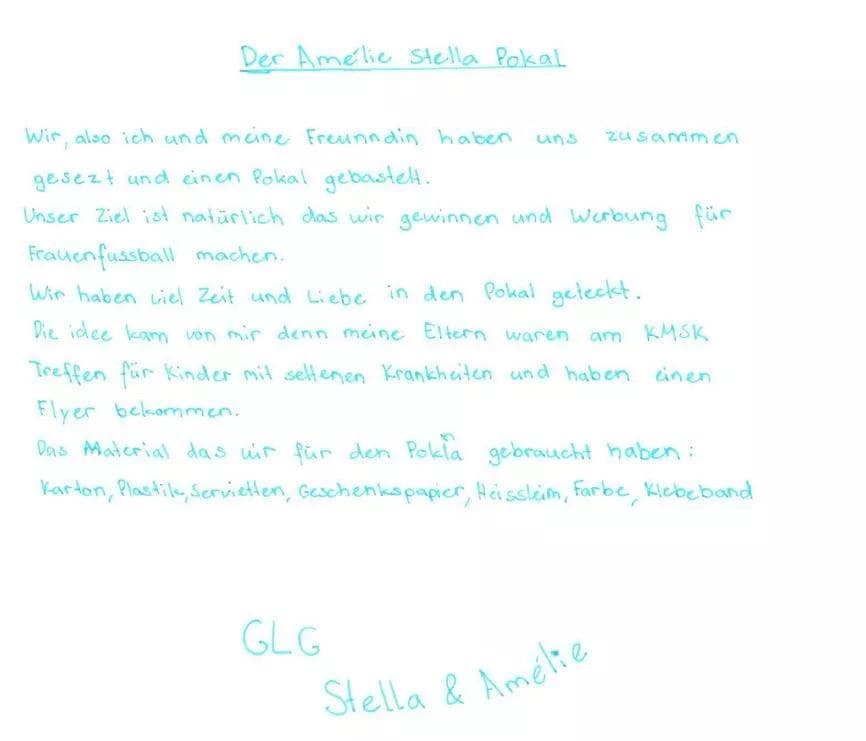 Der Amélie Stella Pokal
Wir, also ich und meine Freunndin haben uns zusammen
gesezt und einen Pokal gebastelt.
Unser Ziel ist natürlich das wir gewinnen und Werbung für
Frauenfussball machen.
Wir haben viel Zeit und Liebe in den Pokal geteckt.
Die idee kam von mir denn meine Eltern waren am KMSK
Treffen für Kinder mit seltenen Krankheiten und haben einen
Flyer bekommen.
Das Material das wir für den gebraucht haben:
Karton, Plastik, Servietten, Geschenkspapier, Heissleim, Farbe, Klebeband
GLG
Stella & Amélie